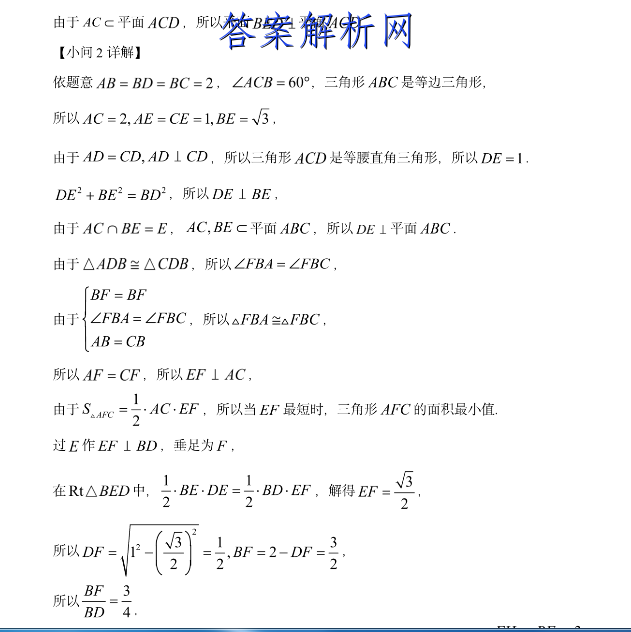 由于 AC ⊂ 平面 ACD，所以平面 BED ⊥ 平面 ACD
答案解析网
【小问 2 详解】
依题意 AB = BD = BC = 2，∠ACB = 60°，三角形 ABC 是等边三角形，
所以 AC = 2, AE = CE = 1, BE = √3，
由于 AD = CD, AD ⊥ CD，所以三角形 ACD 是等腰直角三角形，所以 DE = 1．
DE² + BE² = BD²，所以 DE ⊥ BE，
由于 AC ∩ BE = E，AC, BE ⊂ 平面 ABC，所以 DE ⊥ 平面 ABC．
由于 △ADB ≅ △CDB，所以 ∠FBA = ∠FBC，
由于 { BF = BF
∠FBA = ∠FBC，所以 △FBA ≅ △FBC，
AB = CB
所以 AF = CF，所以 EF ⊥ AC，
由于 S△AFC = 1/2 · AC · EF，所以当 EF 最短时，三角形 AFC 的面积最小值.
过 E 作 EF ⊥ BD，垂足为 F，
在 Rt△BED 中，1/2 · BE · DE = 1/2 · BD · EF，解得 EF = √3/2，
所以 DF = √(1² − (√3/2)²) = 1/2, BF = 2 − DF = 3/2，
所以 BF/BD = 3/4．